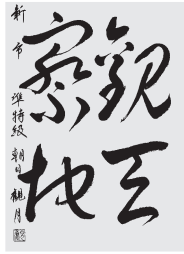 觀天
察地
新市 準特級 朝日 観月